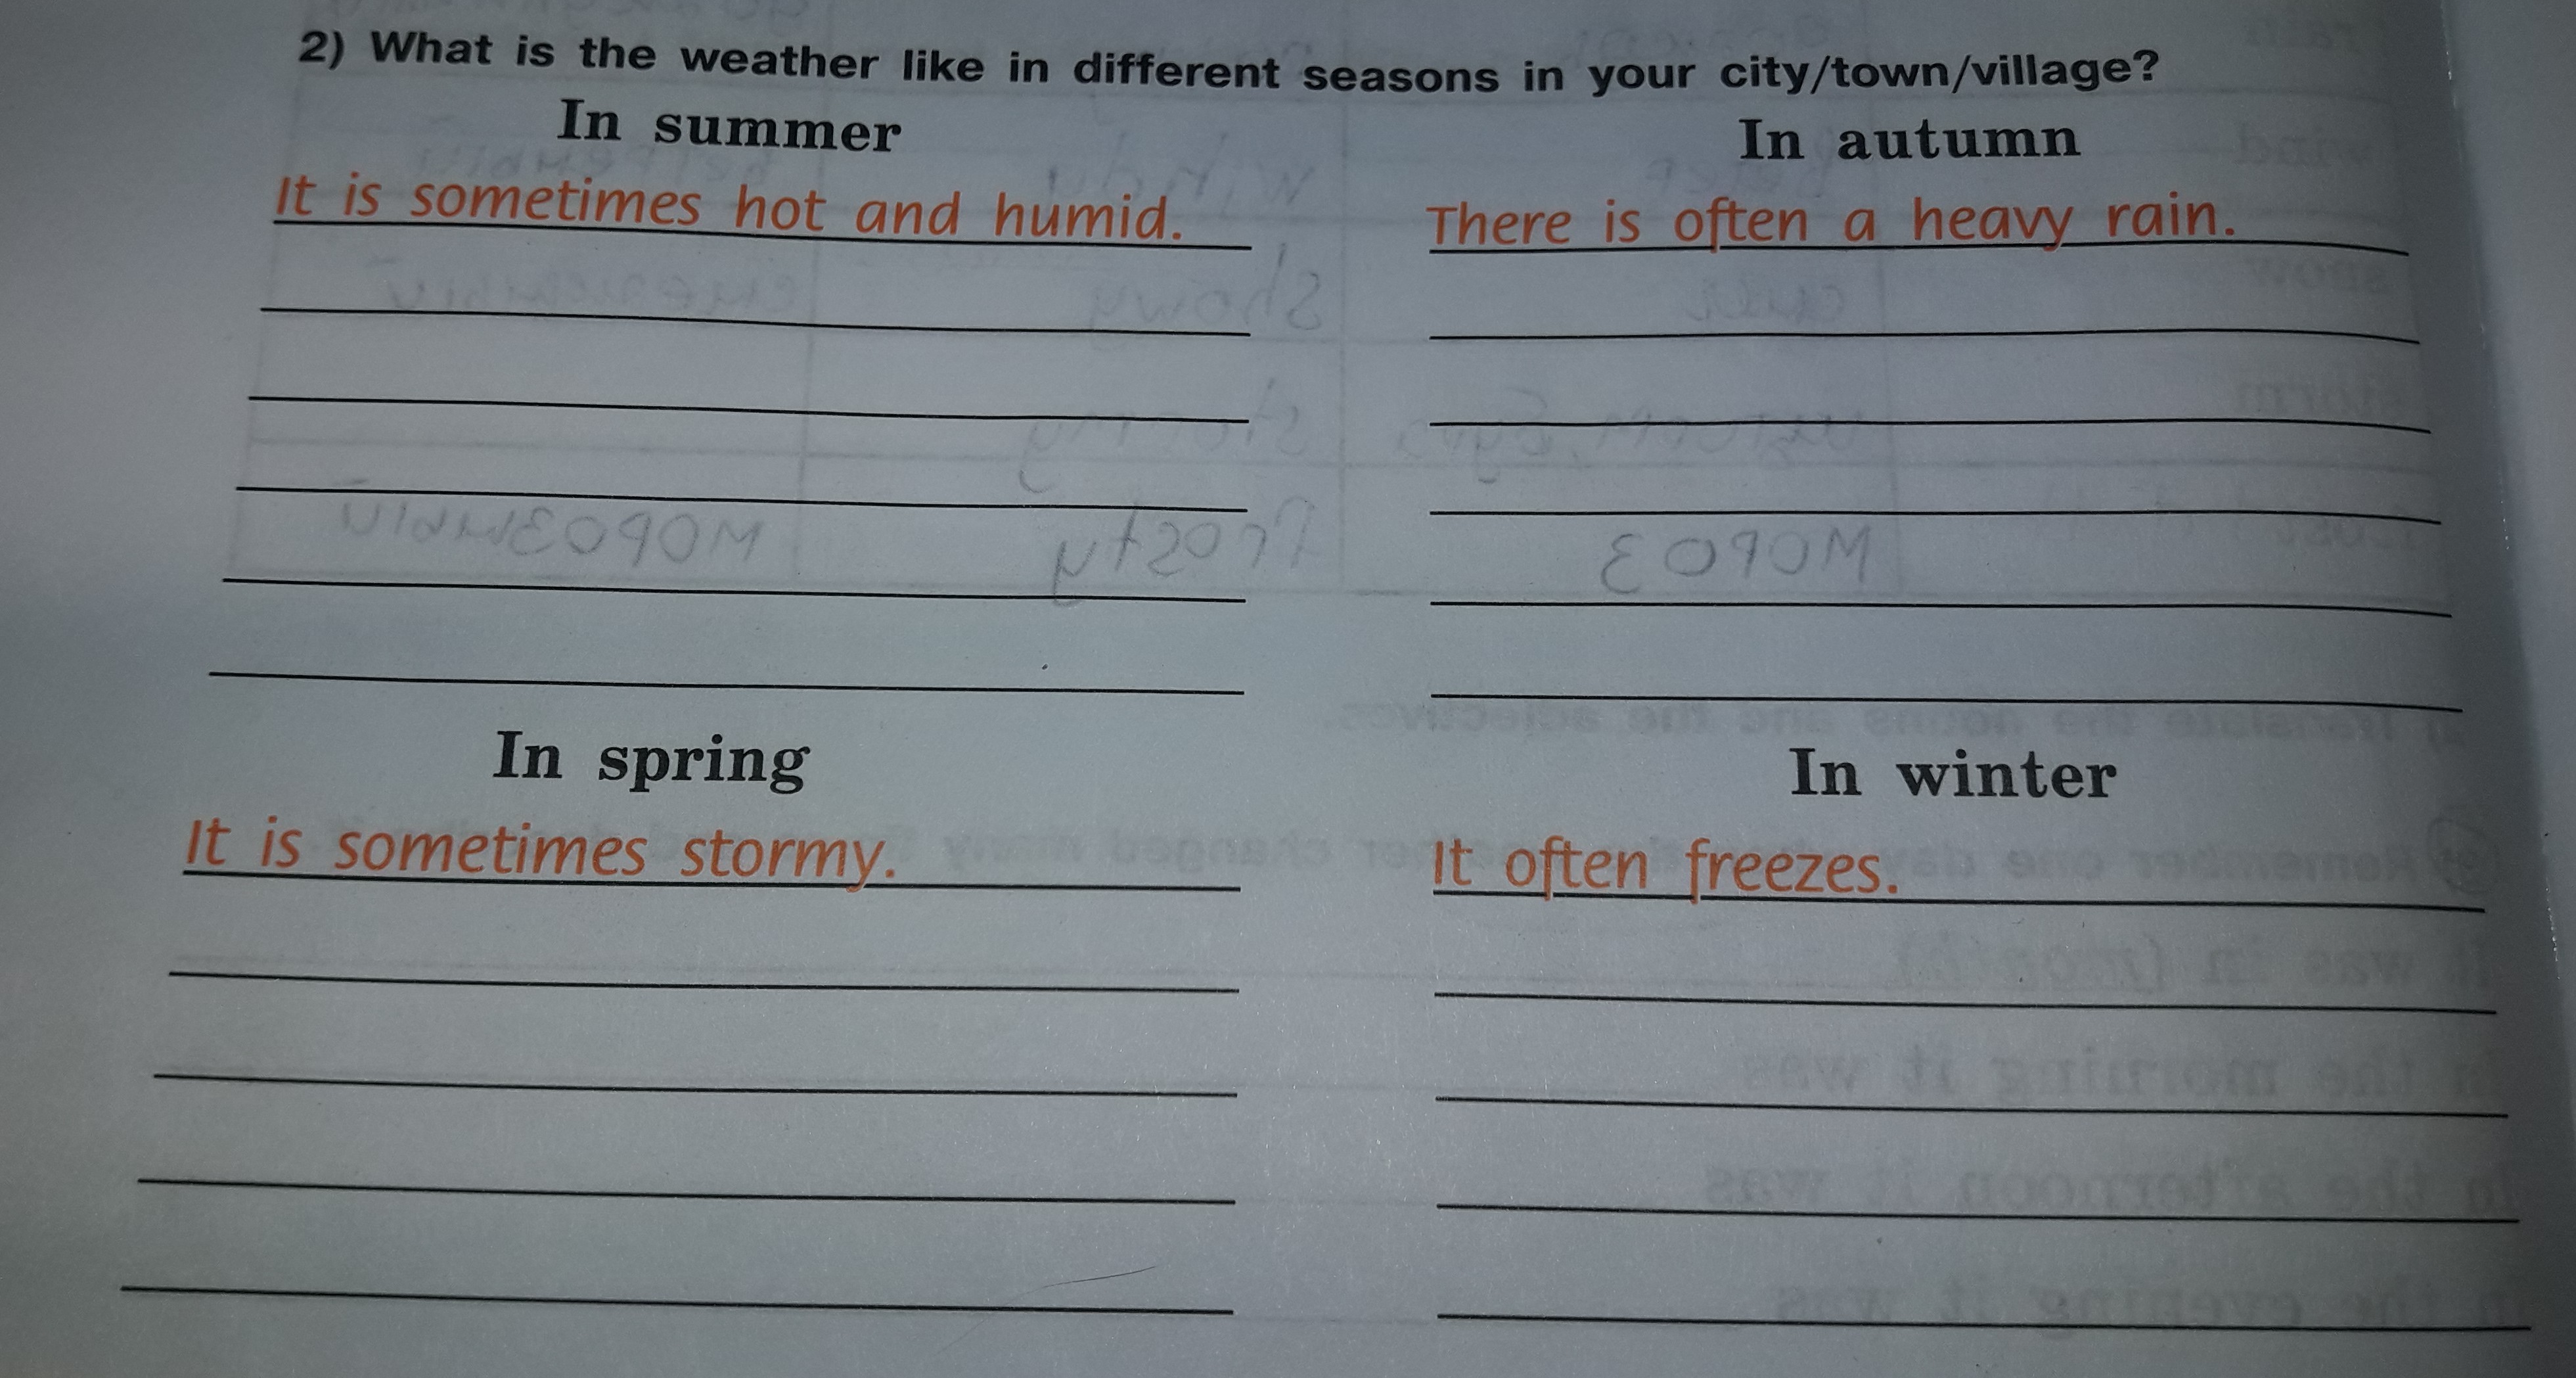 2) What is the weather like in different seasons in your city/town/village?
In summer
It is sometimes hot and humid.
In autumn
There is often a heavy rain.
In spring
It is sometimes stormy.
In winter
It often freezes.